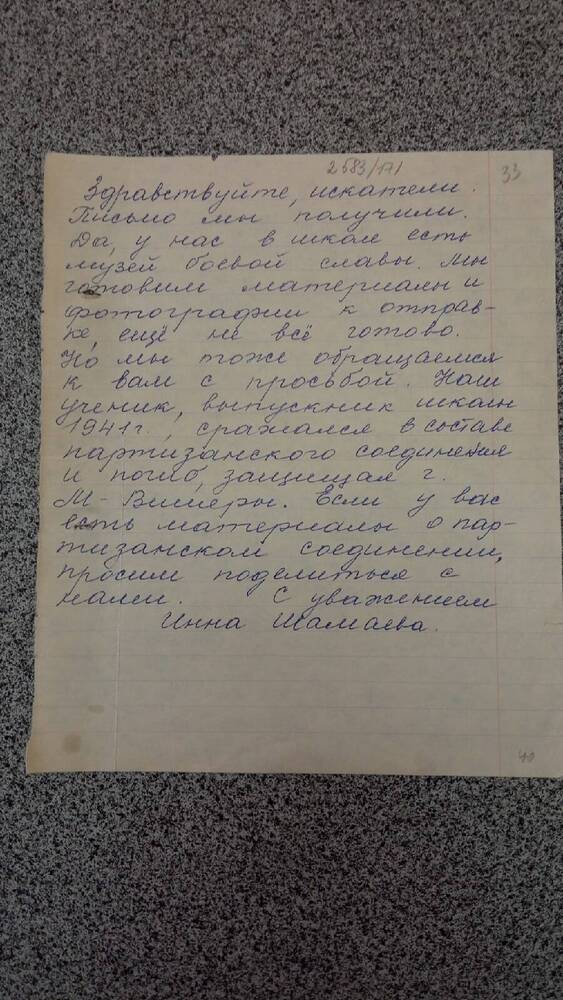 2583/171
33
Здравствуйте, искатели.
Письмо мы получили.
Да, у нас в школе есть
музей боевой славы. Мы
готовим материалы и
фотографии к отправ-
ке, ещё не всё готово.
Но мы тоже обращаемся
к вам с просьбой. Наш
ученик, выпускник школы
1941 г., сражался в составе
партизанского соединения
и погиб, защищая г.
М-Вишеры. Если у вас
есть материалы о пар-
тизанском соединении,
просим поделиться с
нами. С уважением
Инна Шамаева.
40